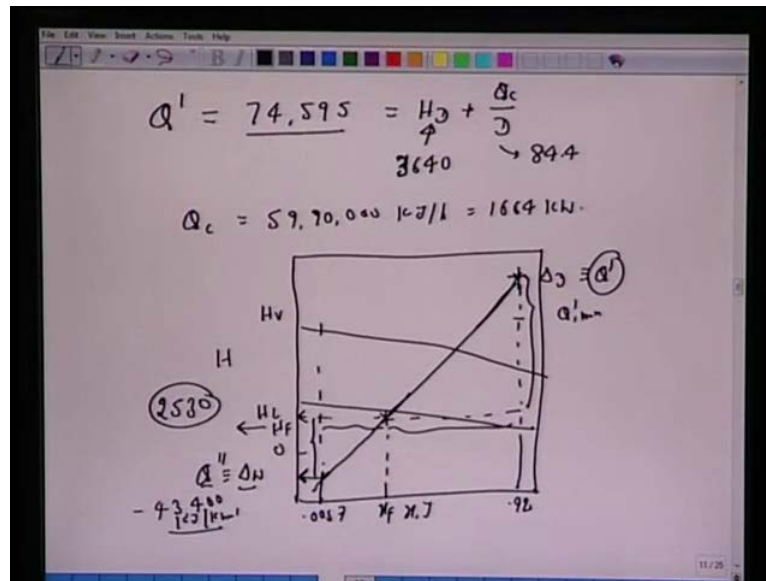 File Edit View Insert Actions Tools Help
Q' = 74,595 = H_D + Q_c/D
3640 → 84.4
Q_c = 59,90,000 kJ/h = 1664 kW.
Δ_D ≡ Q'
Q'min
Hv
H
2530
HL
← HF
0
Q" ≡ Δw
- 43,400
kJ/kmol
.0087 xF x,y .92
11/25